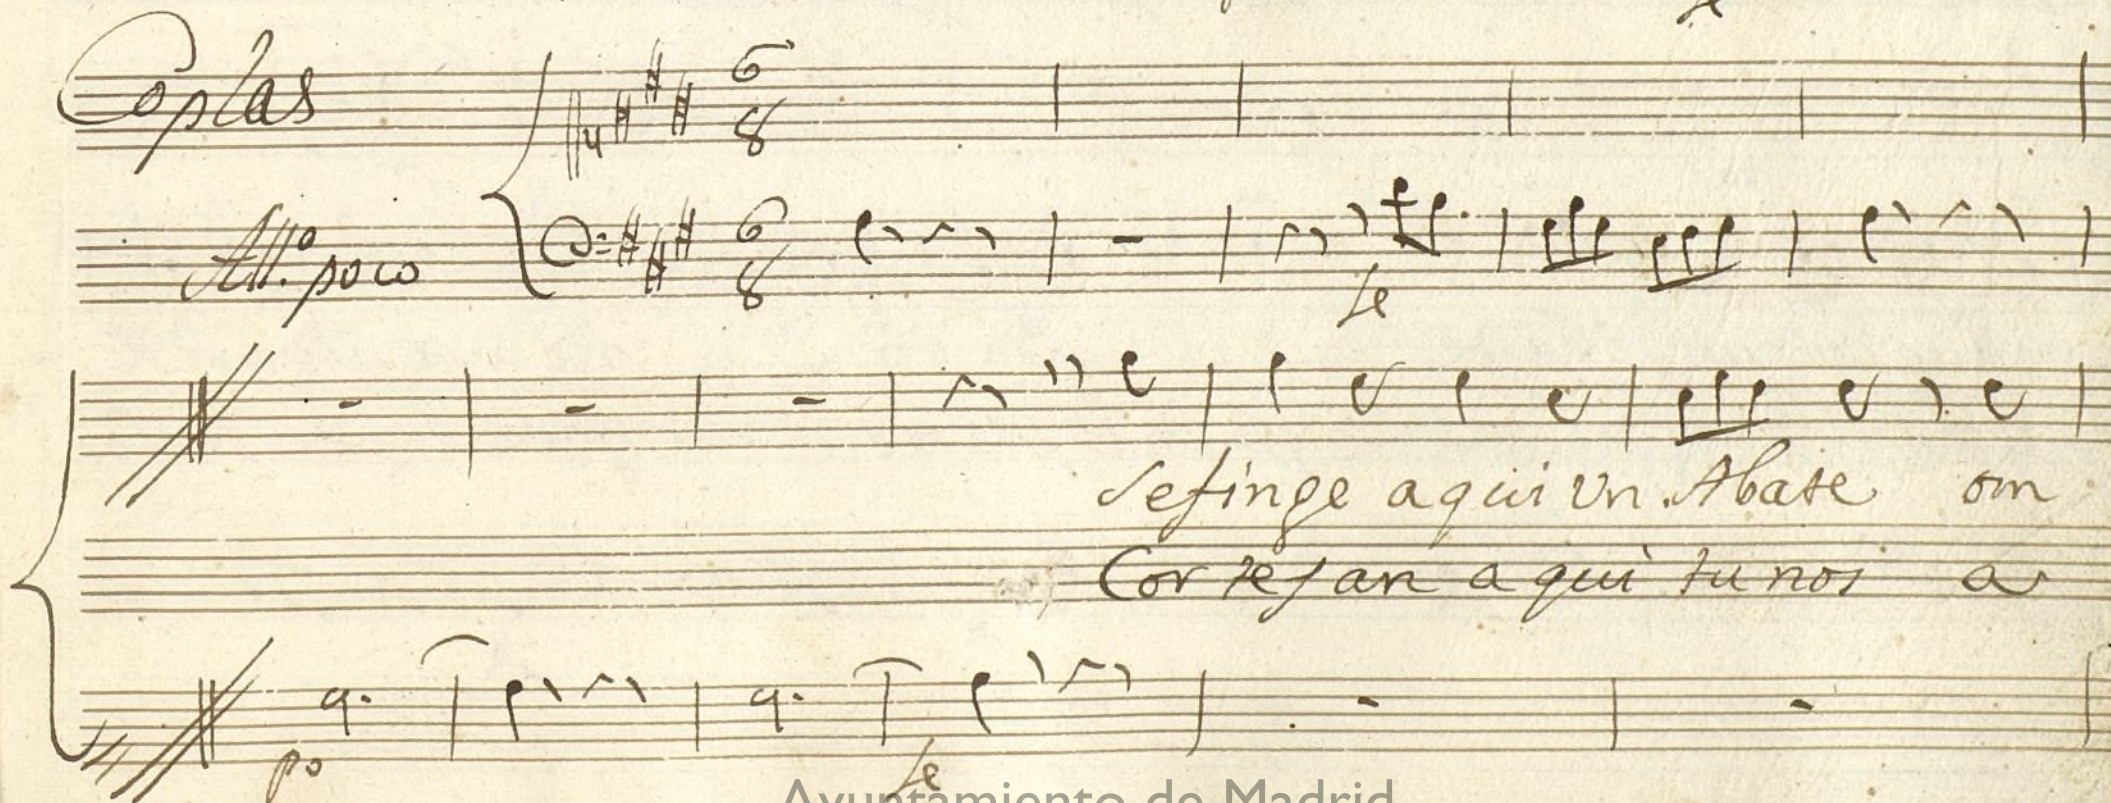 Coplas
6
8
All.o poco
6
8
fe
Sefinge aqui Vn Abate om
Cortejan aqui tunos a
po
fe
Ayuntamiento de Madrid